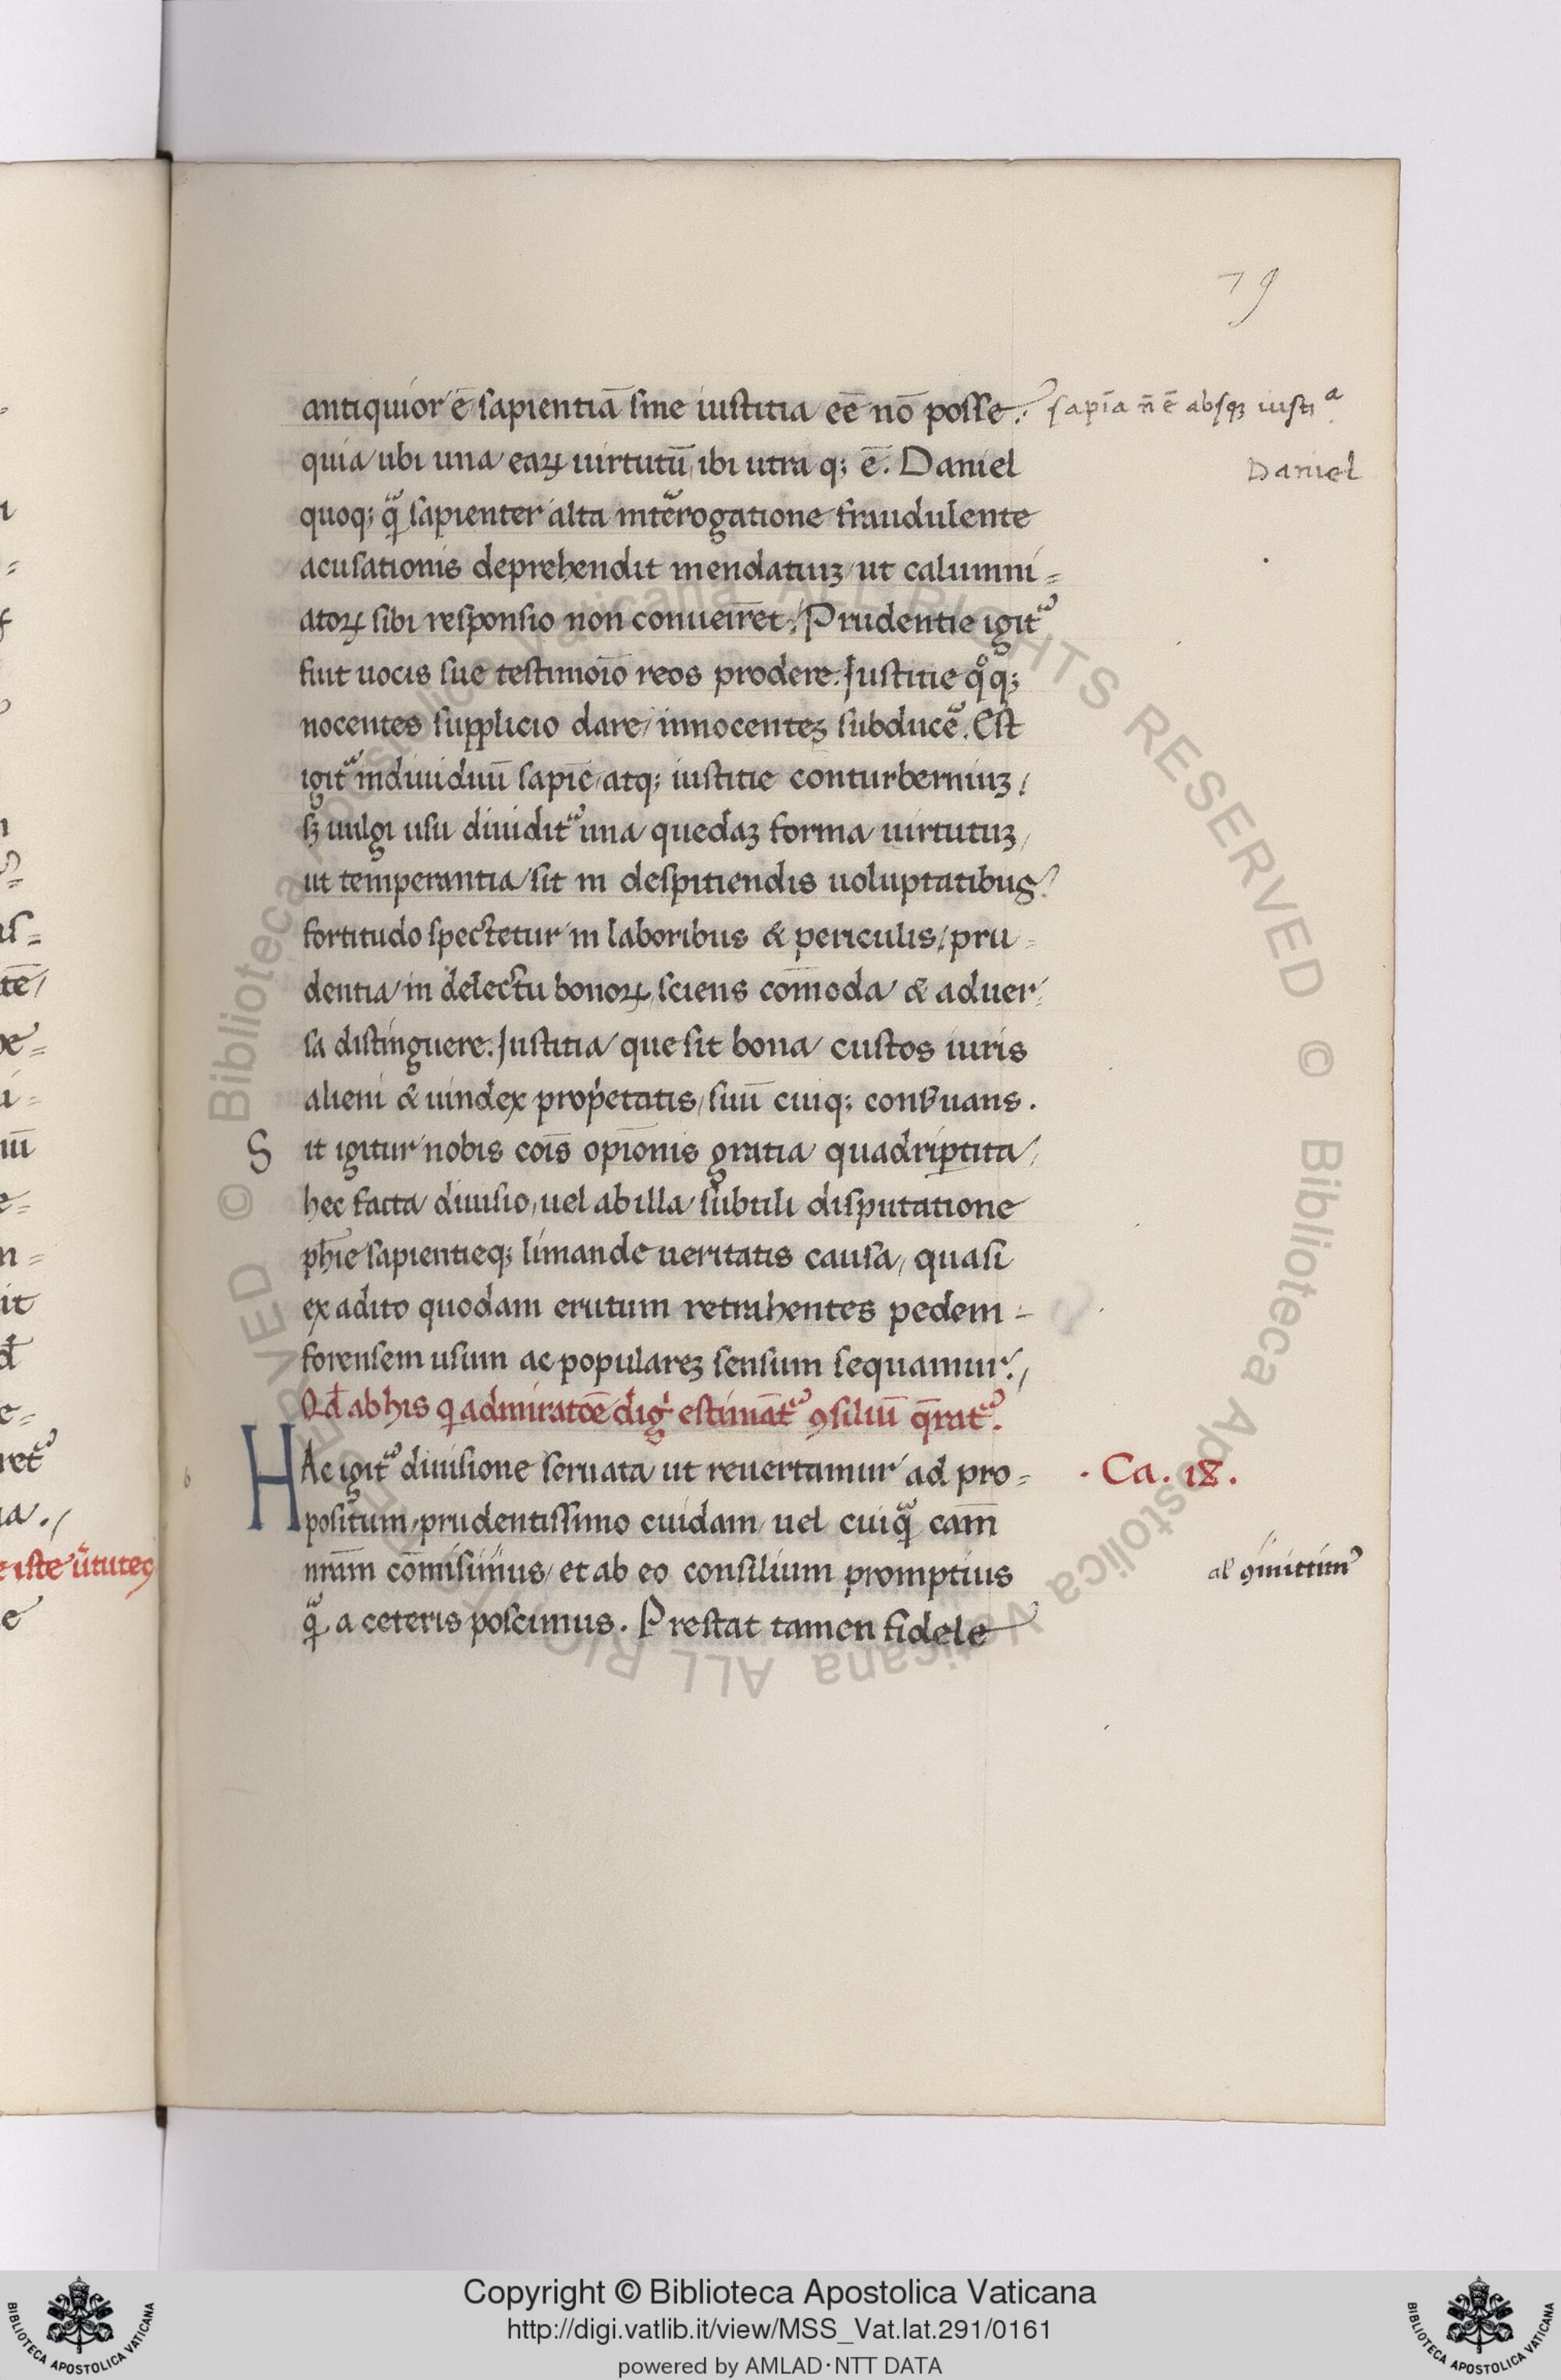 79
antiquior ē sapientiā sine iustitia eē nō posse.
sapīa n̄ ē absqꝫ iustiᵃ
quia ubi una eaꝝ uirtutū, ibi utra qꝫ ē. Daniel
Daniel
quoqꝫ qᷓ sapienter alta intērogatione fraudulente
acusationis deprehendit mendatiuꝫ ut calumni=
atoꝝ sibi responsio non conueiret. Prudentie igit᷑
fuit uocis sue testimoīo reos prodere. Iustitie qͦqꝫ
nocentes supplicio dare, innocenteꝫ subducē. Est
igit᷑ indiuiduū sapīe, atqꝫ iustitie conturberniuꝫ,
sꝫ uulgi usu diuidit᷑ una quedaꝫ forma uirtutuꝫ,
ut temperantia sit in despitiendis uoluptatibuꝰ
fortitudo spectetur in laboribus & periculis, pru=
dentia in delectu bonoꝝ, sciens cōmoda & aduer
sa distinguere. Iustitia que sit bona custos iuris
alieni & uindex prop̄etatis, suū cuiqꝫ conẜuans.
Sit igitur nobis cōis opīonis gratia quadriꝑtita,
hec facta diuisio, uel ab illa subtili disputatione
ph̄ie sapientieqꝫ limande ueritatis causa, quasi
ex adito quodam erutum retrahentes pedem -
forensem usum ac populareꝫ sensum sequamur.
Qđ ab his q admiratōe digͥ estimāt᷑ ꝯsiliū q̄rat᷑.
HAc igit᷑ diuisione seruata ut reuertamur ad pro=
· Ca. 18.
positum, prudentissimo cuidam uel cuiqᷓ cam̄
nr̄am cōmisimus, et ab eo consilium promptius
al' ꝯmittim᷒
qᷓ a ceteris poscimus. Prestat tamen fidele
Copyright © Biblioteca Apostolica Vaticana
http://digi.vatlib.it/view/MSS_Vat.lat.291/0161
powered by AMLAD·NTT DATA